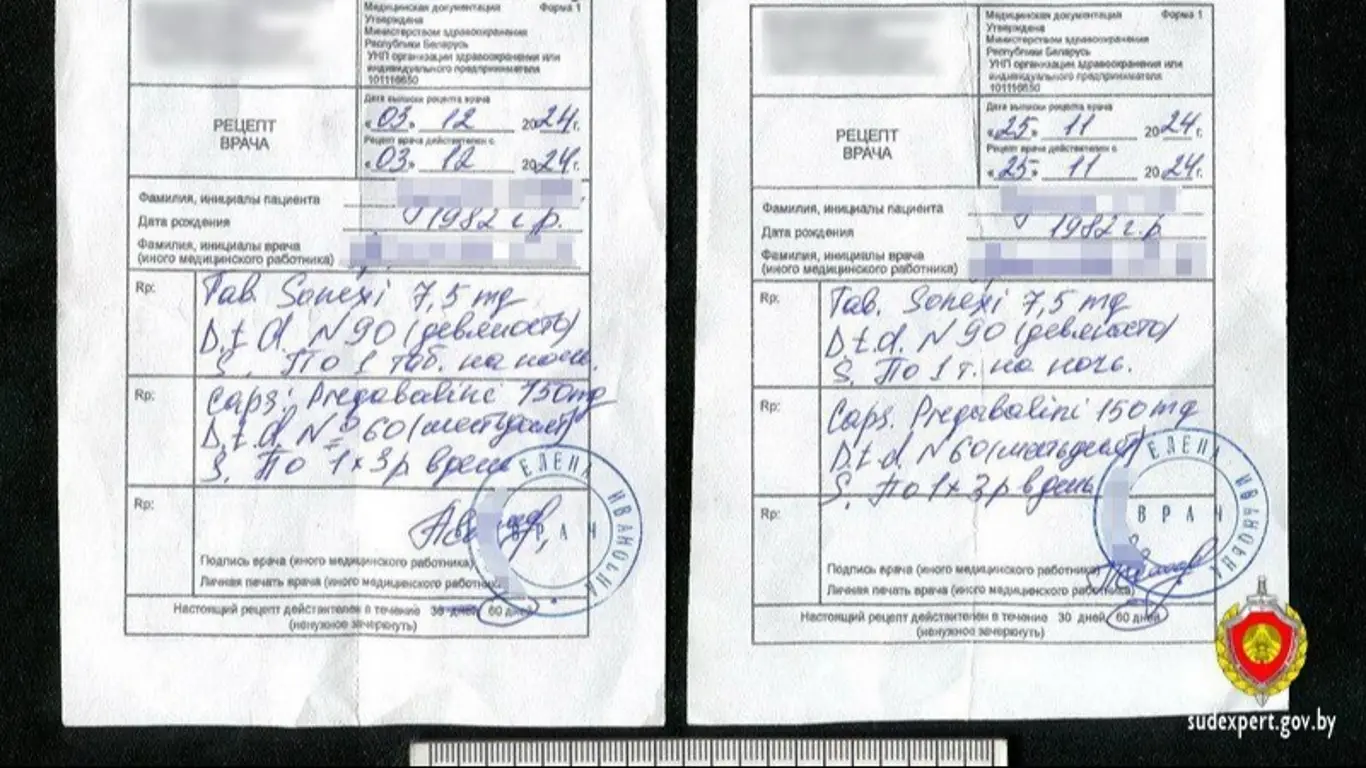 Медицинская документация Форма 1
Утверждена
Министерством здравоохранения
Республики Беларусь
УНП организации здравоохранения или
индивидуального предпринимателя
101116650
РЕЦЕПТ
ВРАЧА
Дата выписки рецепта врача
«03» 12 2024г.
Рецепт врача действителен с
«03» 12 2024г.
Фамилия, инициалы пациента
Дата рождения 1982 г.р.
Фамилия, инициалы врача
(иного медицинского работника)
Rp: Tab. Sonexi 7,5 mg
D.t.d. N 90 (девяносто)
S. По 1 таб. на ночь.
Rp: Caps. Pregabalini 150mg
D.t.d. N=60 (шестьдесят)
S. По 1×3р в день
Rp:
Подпись врача (иного медицинского работника)
Личная печать врача (иного медицинского работника)
ЕЛЕНА ИВАНОВНА
ВРАЧ
Настоящий рецепт действителен в течение 30 дней 60 дней
(ненужное зачеркнуть)
Медицинская документация Форма 1
Утверждена
Министерством здравоохранения
Республики Беларусь
УНП организации здравоохранения или
индивидуального предпринимателя
101116650
РЕЦЕПТ
ВРАЧА
Дата выписки рецепта врача
«25» 11 2024г.
Рецепт врача действителен с
«25» 11 2024г.
Фамилия, инициалы пациента
Дата рождения 1982 г.р
Фамилия, инициалы врача
(иного медицинского работника)
Rp: Tab. Sonexi 7,5 mg
D.t.d. N 90 (девяносто)
S. По 1 т. на ночь.
Rp: Caps. Pregabalini 150 mg
D.t.d. N 60 (шестьдесят)
S. По 1×3р в день
Rp:
Подпись врача (иного медицинского работника)
Личная печать врача (иного медицинского работника)
ЕЛЕНА ИВАНОВНА
ВРАЧ
Настоящий рецепт действителен в течение 30 дней 60 дней
(ненужное зачеркнуть)
sudexpert.gov.by